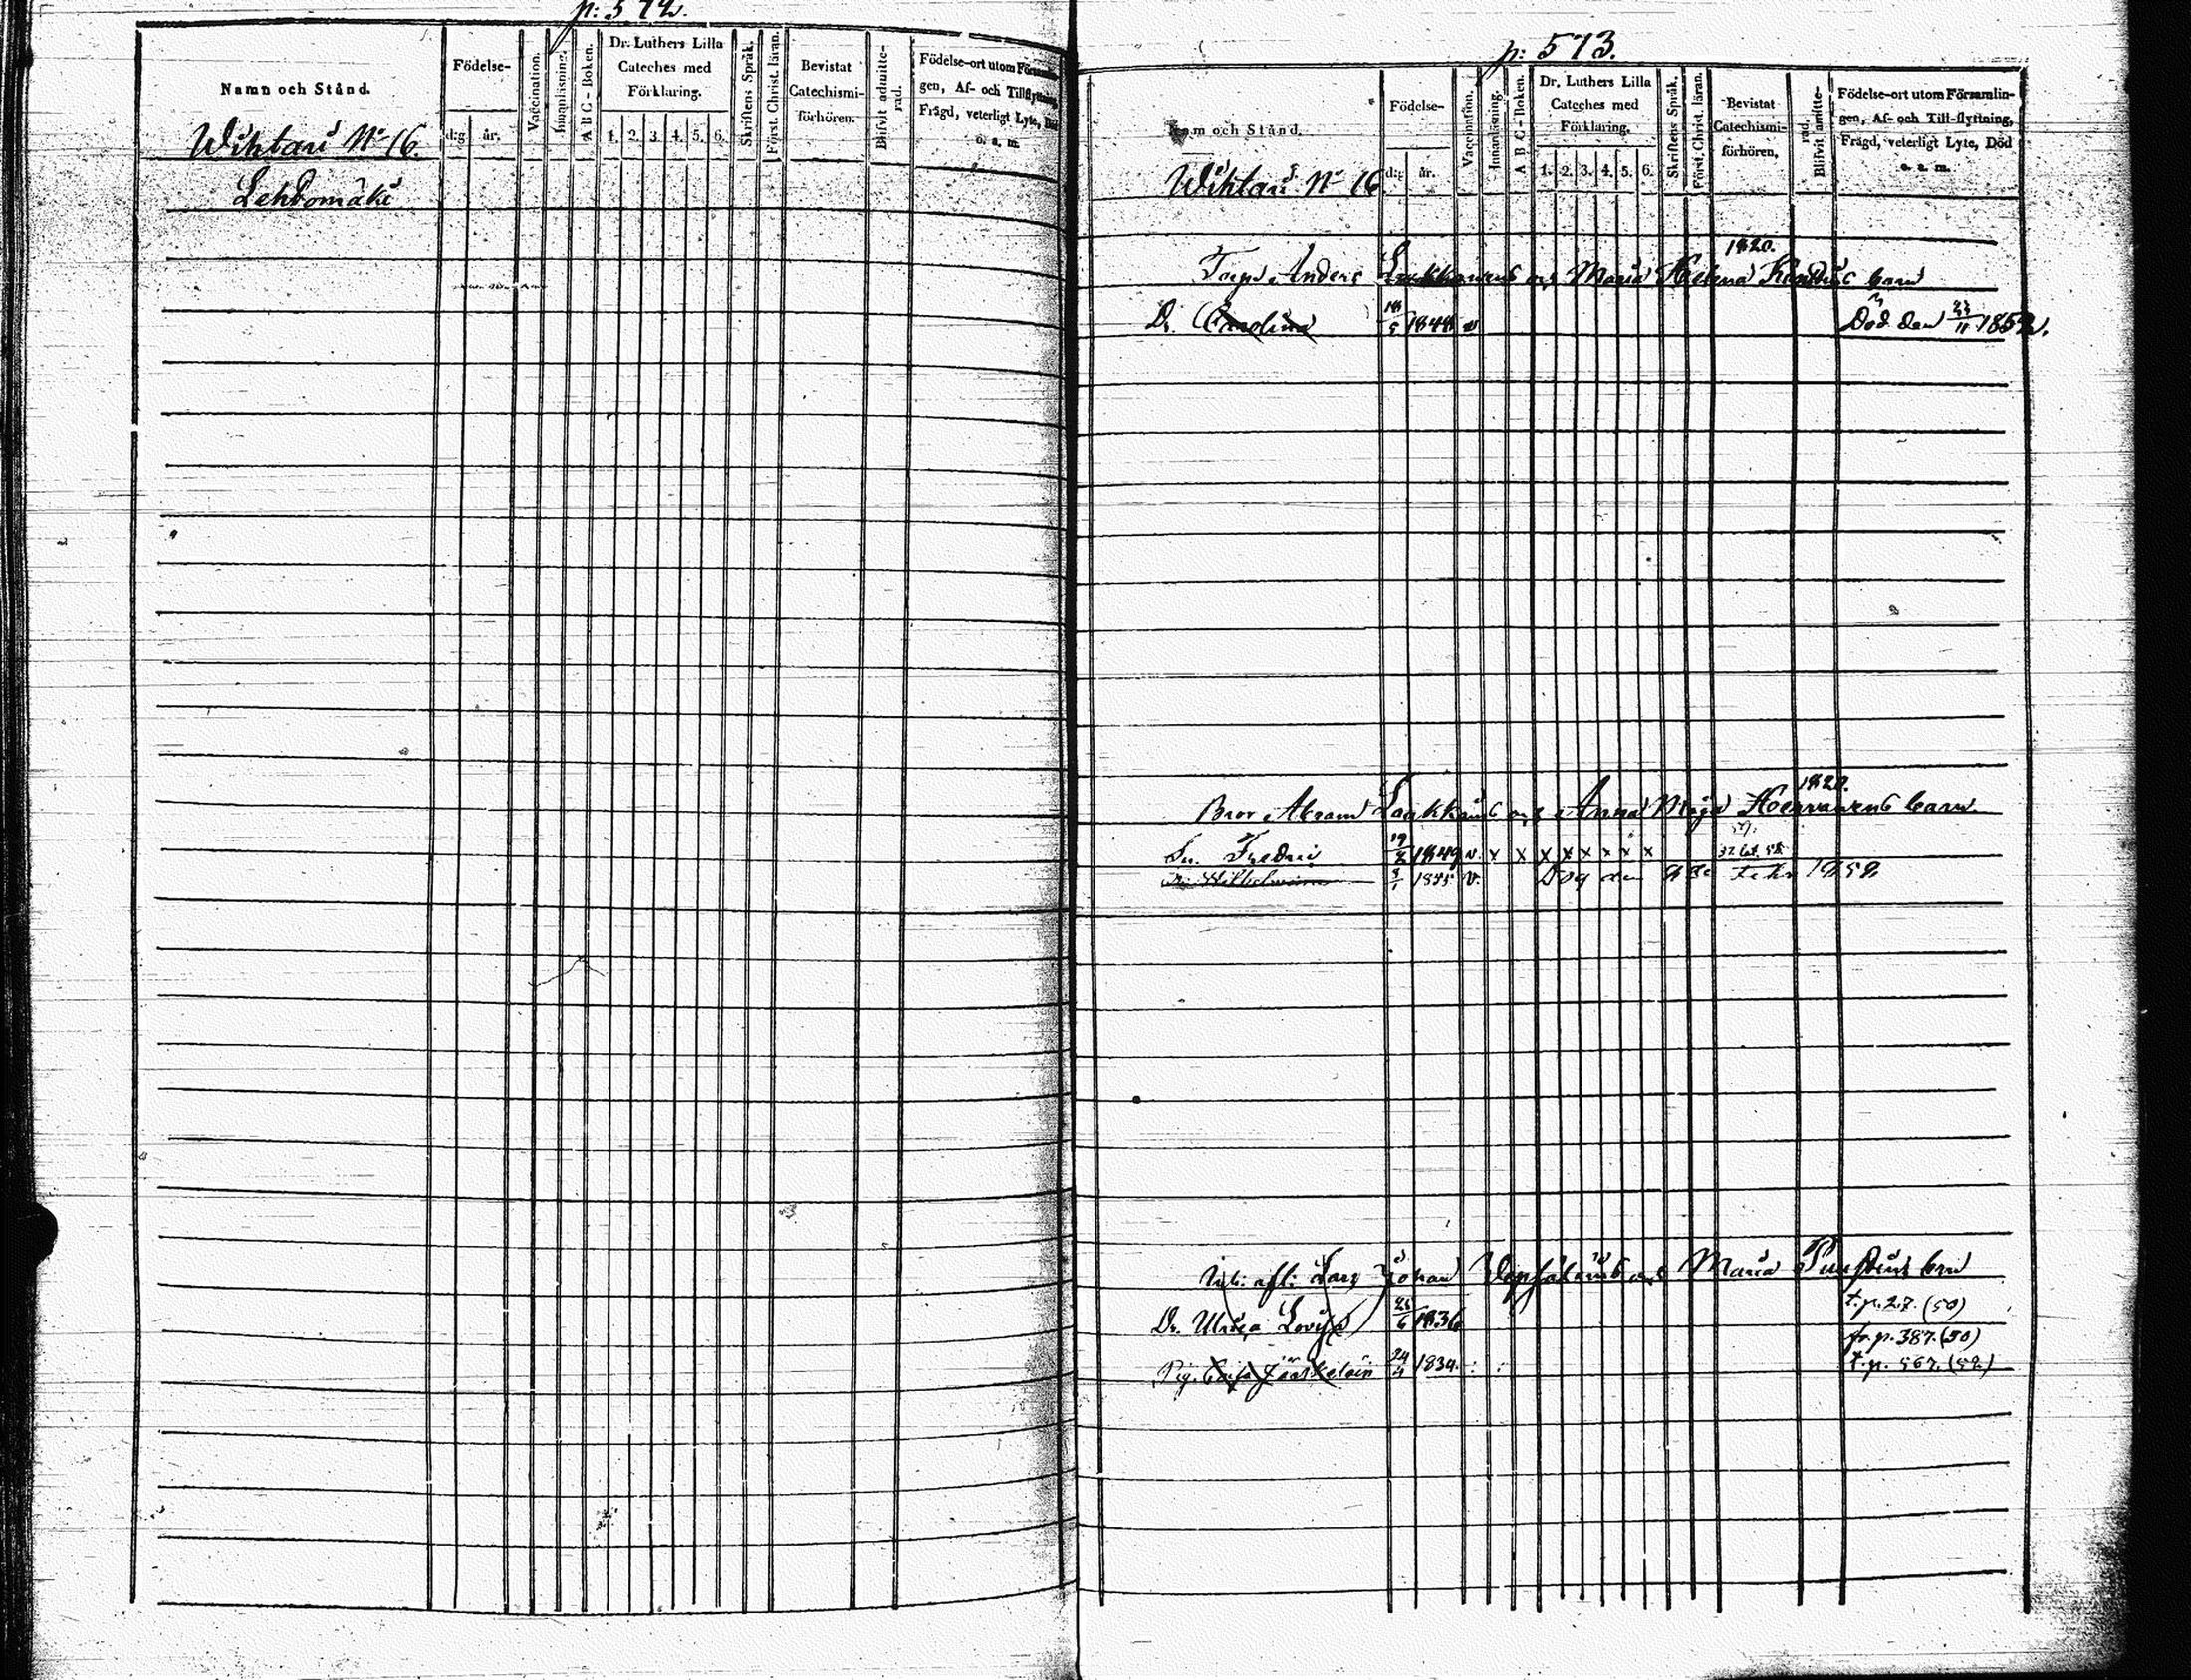 p: 572.
Namn och Stånd.
Födelse-
d:g
år.
Vaccination.
Innanläsning.
A B C - Boken.
Dr. Luthers Lilla
Cateches med
Förklaring.
1. 2. 3. 4. 5. 6.
Skriftens Språk.
Först. Christ. läran.
Bevistat
Catechismi-
förhören.
Blifvit admitte-
rad.
Födelse-ort utom Församlin-
gen, Af- och Tillflyttning,
Frägd, veterligt Lyte, Död
o. a. m.
Wihtari No 16.
Lehtomäki
p: 573.
Namn och Stånd.
Födelse-
d:g
år.
Vaccination.
Innanläsning.
A B C - Boken.
Dr. Luthers Lilla
Cateches med
Förklaring.
1. 2. 3. 4. 5. 6.
Skriftens Språk.
Först. Christ. läran.
Bevistat
Catechismi-
förhören.
Blifvit admitte-
rad.
Födelse-ort utom Församlin-
gen, Af- och Till-flyttning,
Frägd, veterligt Lyte, Död
o. a. m.
Wihtari No 16
1820.
Torp. Anders och Maria Helena barn
Dr. Carolina 18/5 1848 v Död den 23/11 1852.
1820.
Bror Abram Laakkains och Anna Maja barn
Sn. Fredric 19/2 1849 v. x x x x x x x x
Dr. Wilhelmina 3/1 1855 v. Dog den Febr 185
Johan och Maria brn
t.p. 27. (50)
Dr. Ulrica Lovisa 26/6 1836
fr. p. 387. (50)
Pig. Jääskeläin 24/4 1834. t.p. 567. (52)